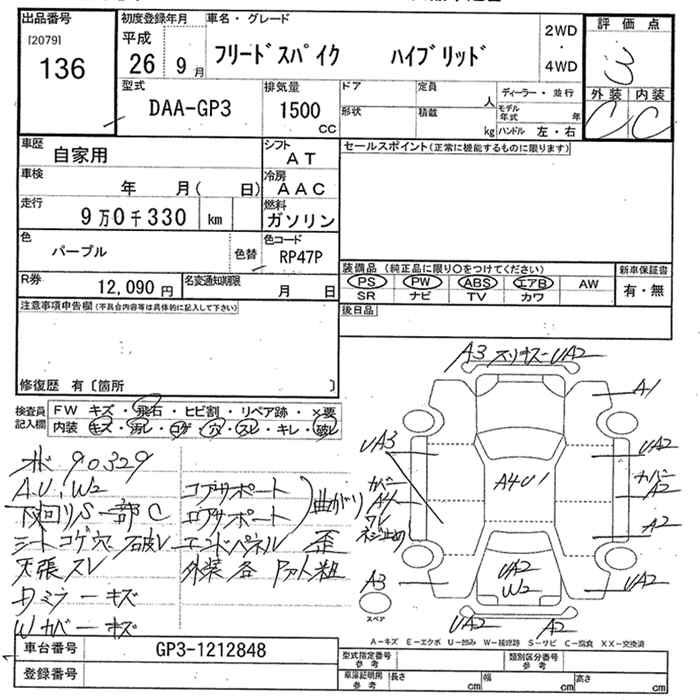 出品番号
[2079]
136
初度登録年月
平成
26 9月
車名・グレード
フリードスパイク ハイブリッド
2WD
・
4WD
評価点
外装 内装
C C
型式
DAA-GP3
排気量
1500
CC
ドア
定員
人
ディーラー・並行
形状
積載
kg
モデル年式
年
ハンドル 左・右
車歴
自家用
シフト
AT
セールスポイント(正常に機能するものに限ります)
車検
年 月( 日)
冷房
AAC
走行
9万0千330 km
燃料
ガソリン
色
パープル
色替
色コード
RP47P
装備品(純正品に限り○をつけてください)
PS PW ABS エアB AW
SR ナビ TV カワ
新車保証書
有・無
R券
12,090円
名変通知期限
月 日
後日品
注意事項申告欄(不具合内容等は具体的に記入して下さい)
修復歴 有〔箇所 〕
検査員記入欄
FW キズ・飛石・ヒビ割・リペア跡・×要
内装 キズ・汚レ・コゲ・穴・スレ・キレ・破レ
90329
A.U.W2
下回りS 一部C
シートコゲ穴 破レ
天張スレ
Rミラーキズ
Wカバーキズ
コアサポート
ロアサポート
曲がり
エンドパネル 歪
外装各
粗
A3 UA2
A1
UA3
UA2
カバー
A4
ワレ
ネジ止め
カバー
A2
A4U1
A2
A3
UA2
W2
UA2
スペア
UA2 A2
A-キズ E-エクボ U-凹み W-補修跡 S-サビ C-腐食 XX-交換済
車台番号
GP3-1212848
登録番号
型式指定番号
参考
類別区分番号
参考
車庫証明用
参考
長さ cm 幅 cm 高さ cm